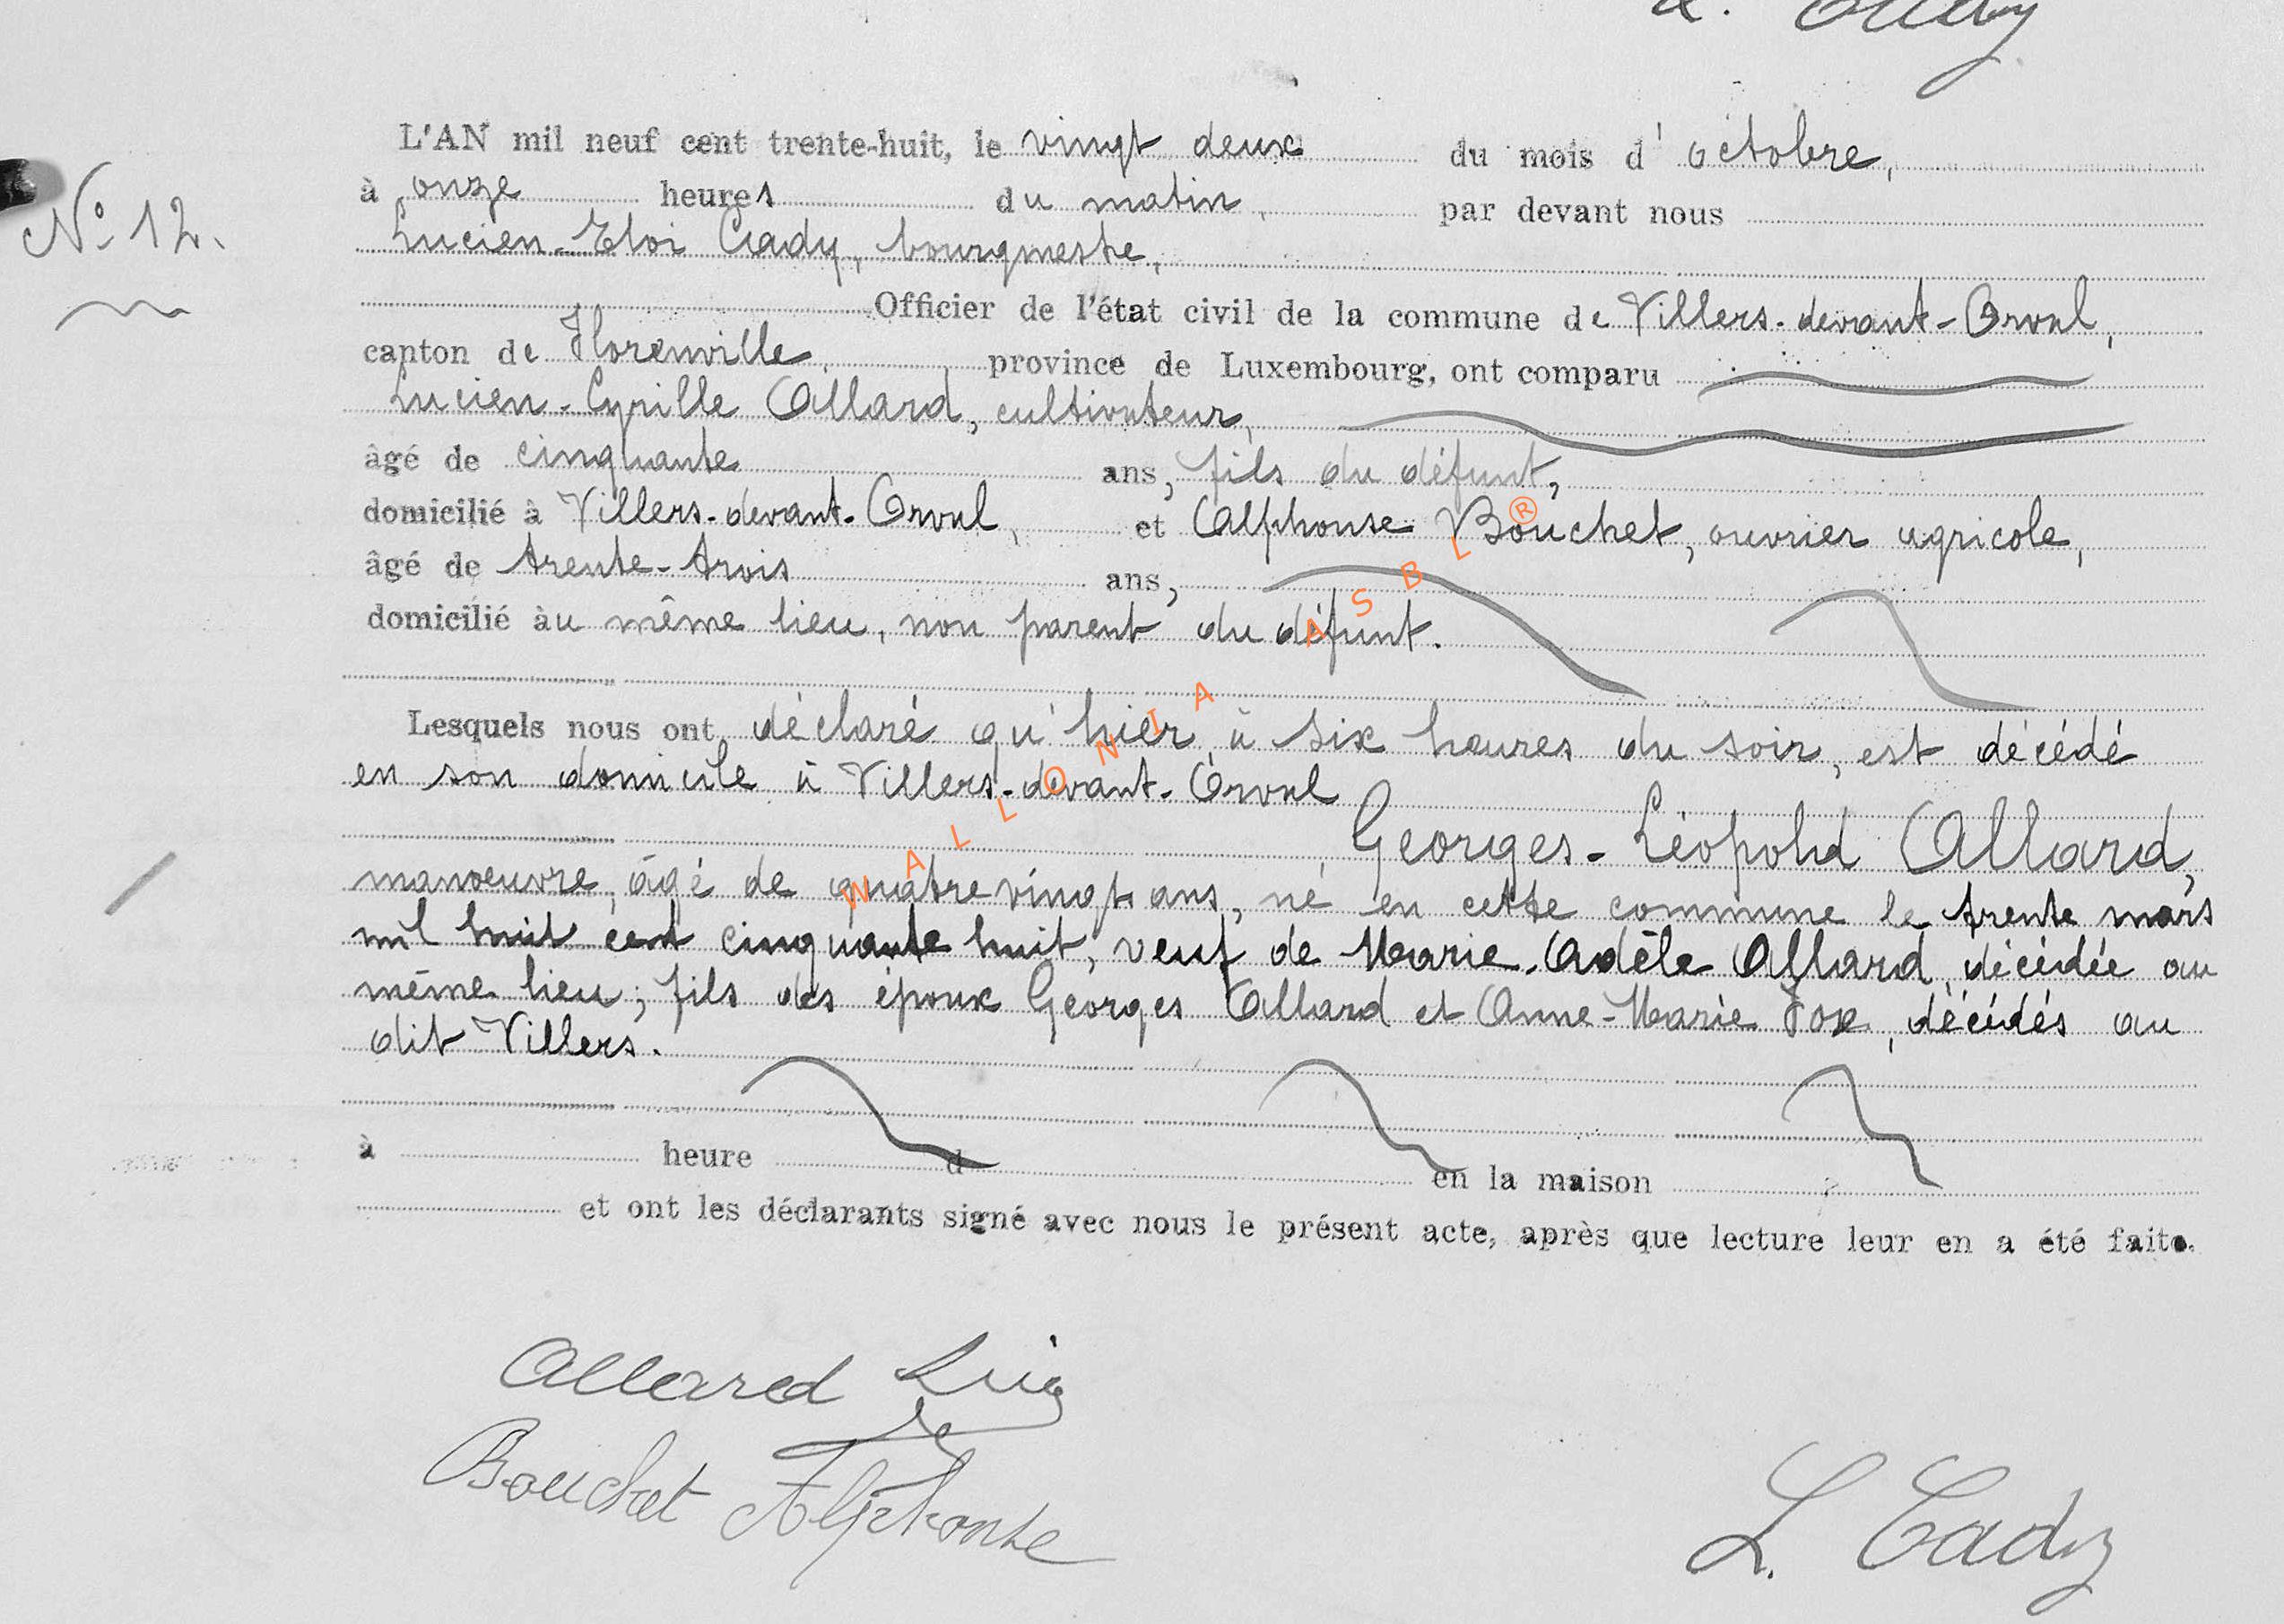 L. Cady
L'AN mil neuf cent trente-huit, le vingt deux du mois d'octobre,
N° 12.
à onze heures du matin, par devant nous
Lucien-Eloi Cady, bourgmestre,
Officier de l'état civil de la commune de Villers-devant-Orval,
canton de Florenville, province de Luxembourg, ont comparu
Lucien-Cyrille Allard, cultivateur,
âgé de cinquante ans, fils du défunt,
domicilié à Villers-devant-Orval, et Alphonse Bouchet, ouvrier agricole,
âgé de trente-trois ans,
domicilié àu même lieu, non parent du défunt.
Lesquels nous ont déclaré qu'hier, à six heures du soir, est décédé
en son domicile à Villers-devant-Orval
Georges-Léopold Allard,
manoeuvre, âgé de quatre vingt ans, né en cette commune le trente mars
mil huit cent cinquante huit, veuf de Marie-Adèle Allard, décédée au
même lieu; fils des époux Georges Allard et Anne-Marie Fox, décédés au
dit Villers.
à heure d en la maison
et ont les déclarants signé avec nous le présent acte, après que lecture leur en a été faite.
Allard
Bouchet Alphonse
L. Cady
WALLONIA ASBL ®